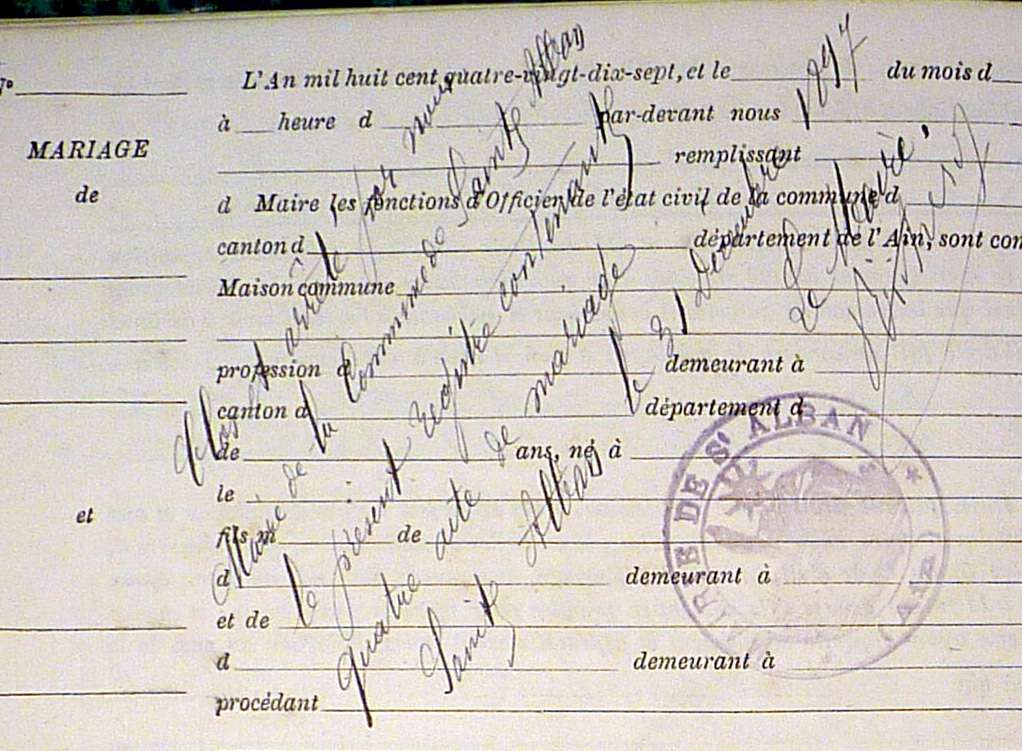 No
L'An mil huit cent quatre-vingt-dix-sept, et le du mois d
à heure d par-devant nous
MARIAGE
remplissant
de
d Maire les fonctions d'Officier de l'état civil de la commune d
canton d département de l'Ain, sont com
Maison commune
profession d demeurant à
canton d département d
de ans, né à
le
et
fils m de
d demeurant à
et de
d demeurant à
procédant
Clos et arrêté par nous
Maire de la Commune de Sainte Alban
le présent registre contenant
quatre acte de mariade
Saint Alban le 31 Decembre 1897
Le Maire
MAIRIE DE ST ALBAN (AIN)